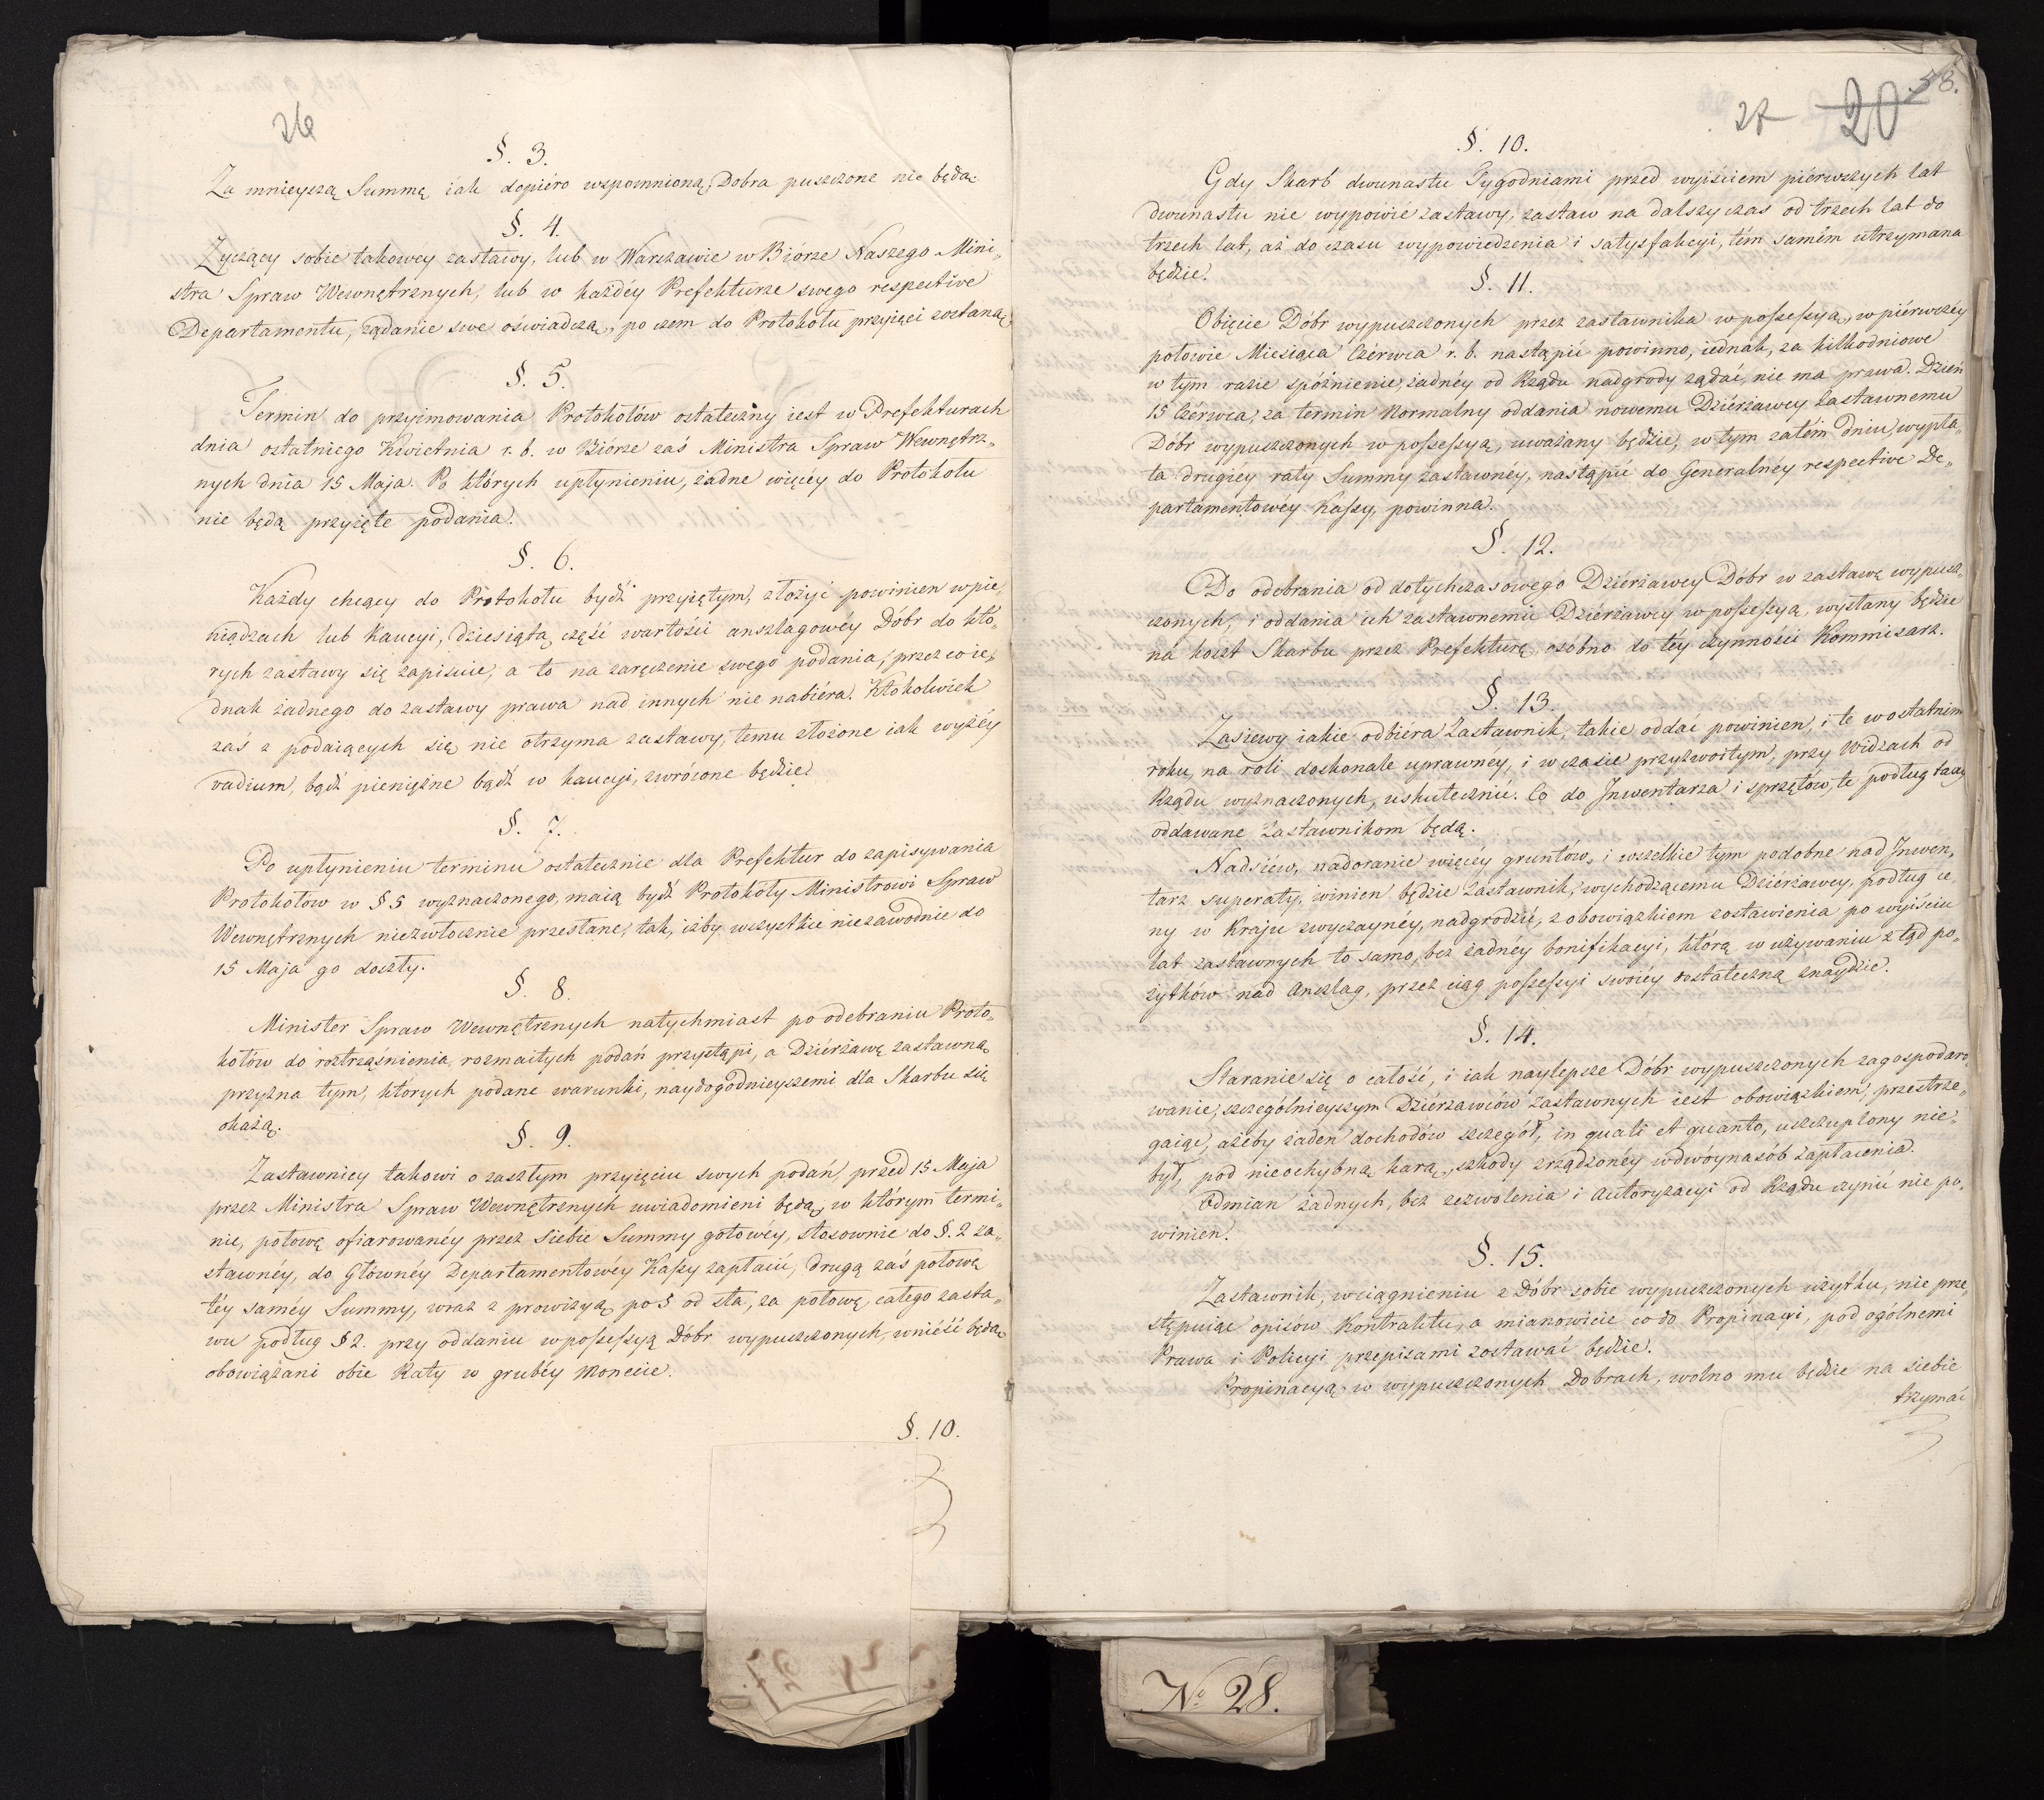 26
§. 3.
Za mnieyszą Summę iak dopiéro wspomnioną, Dobra puszczone nie będą.
§. 4.
Życzący sobie takowéy zastawy, lub w Warszawie w Biórze Naszego Mini„
stra Spraw Wewnętrznych, lub w każdéy Prefekturze swego respective
Departamentu, żądanie swe oświadczą, po czem do Protokołu przyięci zostaną.
§. 5.
Termin do przyimowania Protokołów ostateczny iest w Prefekturach
dnia ostatniego Kwietnia r. b. w Biórze zaś Ministra Spraw Wewnętrz„
nych dnia 15 Maja. Po których upłynieniu, żadne więcéy do Protokołu
nie będą przyięte podania.
§. 6.
Każdy chcący do Protokołu bydź przyiętym, złożyć powinien w pie„
niądzach lub Kaucyi, dziesiątą część wartości anszlagowéy Dóbr do któ„
rych zastawy się zapisuie, a to na zaręczenie swego podania, przez co ie„
dnak żadnego do zastawy prawa nad innych nie nabiéra. Ktokolwiek
zaś z podaiących się nie otrzyma zastawy, temu złożone iak wyżéy
vadium, bądź pieniężne bądź w kaucyi, zwrócone będzie.
§. 7.
Po upłynieniu terminu ostatecznie dla Prefektur do zapisywania
Protokołów w § 5 wyznaczonego, maią bydź Protokoły Ministrowi Spraw
Wewnętrznych niezwłocznie przesłane, tak, iżby wszystkie niezawodnie do
15 Maja go doszły.
§. 8.
Minister Spraw Wewnętrznych natychmiast po odebraniu Proto„
kołów do roztrząśnienia rozmaitych podań przystąpi, a Dziérżawę zastawną
przyzna tym, których podane warunki, naydogodnieyszemi dla Skarbu się
okażą.
§. 9.
Zastawnicy takowi o zaszłym przyięciu swych podań, przed 15 Maja
przez Ministra Spraw Wewnętrznych uwiadomieni będą, w którym termi„
nie, połowę ofiarowanéy przez siebie Summy gotowéy, stosownie do §. 2 za„
stawnéy, do Głównéy Departamentowéy Kassy zapłacić, drugą zaś połowę
téy saméy Summy, wraz z prowizyą po 5 od sta, za połowę, całego zasta„
wu podług § 2. przy oddaniu w possessyą Dóbr wypuszczonych, wnieść będą
obowiązani obie Raty w grubéy Monecie.
§. 10.
27 20 58.
§. 10.
Gdy Skarb dwunastu Tygodniami przed wyiściem piérwszych lat
dwunastu nie wypowié zastawy, zastaw na dalszy czas od trzech lat do
trzech lat, aż do czasu wypowiedzenia i satysfakcyi, tém samém utrzymana
będzie.
§. 11.
Obięcie Dóbr wypuszczonych przez zastawnika w possessyą, w piérwszéy
połowie Miesiąca Czérwca r. b. nastąpić powinno, iednak, za kilkodniowe
w tym razie spóźnienie, żadnéy od Rządu nadgrody żądać, nie ma prawa. Dzień
15 Czérwca, za termin Normalny oddania nowemu Dziérżawcy zastawnemu
Dóbr wypuszczonych w possessyą, uważany będzie, w tym zatém dniu, wypła„
ta drugiey raty Summy zastawnéy, nastąpić do Generalnéy respective De„
partamentowéy Kassy, powinna.
§. 12.
Do odebrania od dotychczasowego Dziérżawcy Dóbr w zastawę wypusz„
czonych, i oddania ich zastawnemu Dziérżawcy w possessyą, wysłany będzie
na koszt Skarbu przez Prefekturę, osóbno do téy czynności Kommisarz.
§. 13.
Zasiewy iakie odbiéra Zastawnik, takie oddać powinien, i te w ostatnim
roku, na roli doskonale uprawney, i w czasie przyzwoitym, przy Widzach od
Rządu wyznaczonych, uskutecznić. Co do Inwentarza i sprzętów, te podług taxy
oddawane Zastawnikom będą.
Nadsiéw, nadoranie więcéy gruntów, i wszelkie tym podobne nad Inwen„
tarz superaty, winien będzie Zastawnik, wychodzącemu Dziérżawcy, podług ce„
ny w Kraju zwyczaynéy, nadgrodzić, z obowiązkiem zostawienia po wyiściu
lat zastawnych to samo, bez żadnéy bonifikacyi, którą w używaniu ztąd po„
żytków nad Anszlag, przez ciąg possessyi swoiéy dostateczną znaydzie.
§. 14.
Staranie się o całość, i iak naylepsze Dóbr wypuszczonych zagospodaro„
wanie, szczególnieyszym Dziérżawców Zastawnych iest obowiązkiem, przestrze„
gaiąc, ażeby żaden dochodów szczegół, in quali et quanto, uszczuplony nie„
był, pod nieochybną karą, szkody zrządzonéy w dwóynasób zapłacenia.
Odmian żadnych, bez zezwolenia i Autoryzacyi od Rządu czynić nie po„
winien.
§. 15.
Zastawnik, w ciągnieniu z Dóbr sobie wypuszczonych użytku, nie prze„
stępuiąc opisów Kontraktu, a mianowicie co do Propinacyi, pod ogólnemi
Prawa i Policyi przepisami zostawać będzie.
Propinacyą w wypuszczonych Dobrach, wolno mu będzie na siebie
trzymać
No 28.